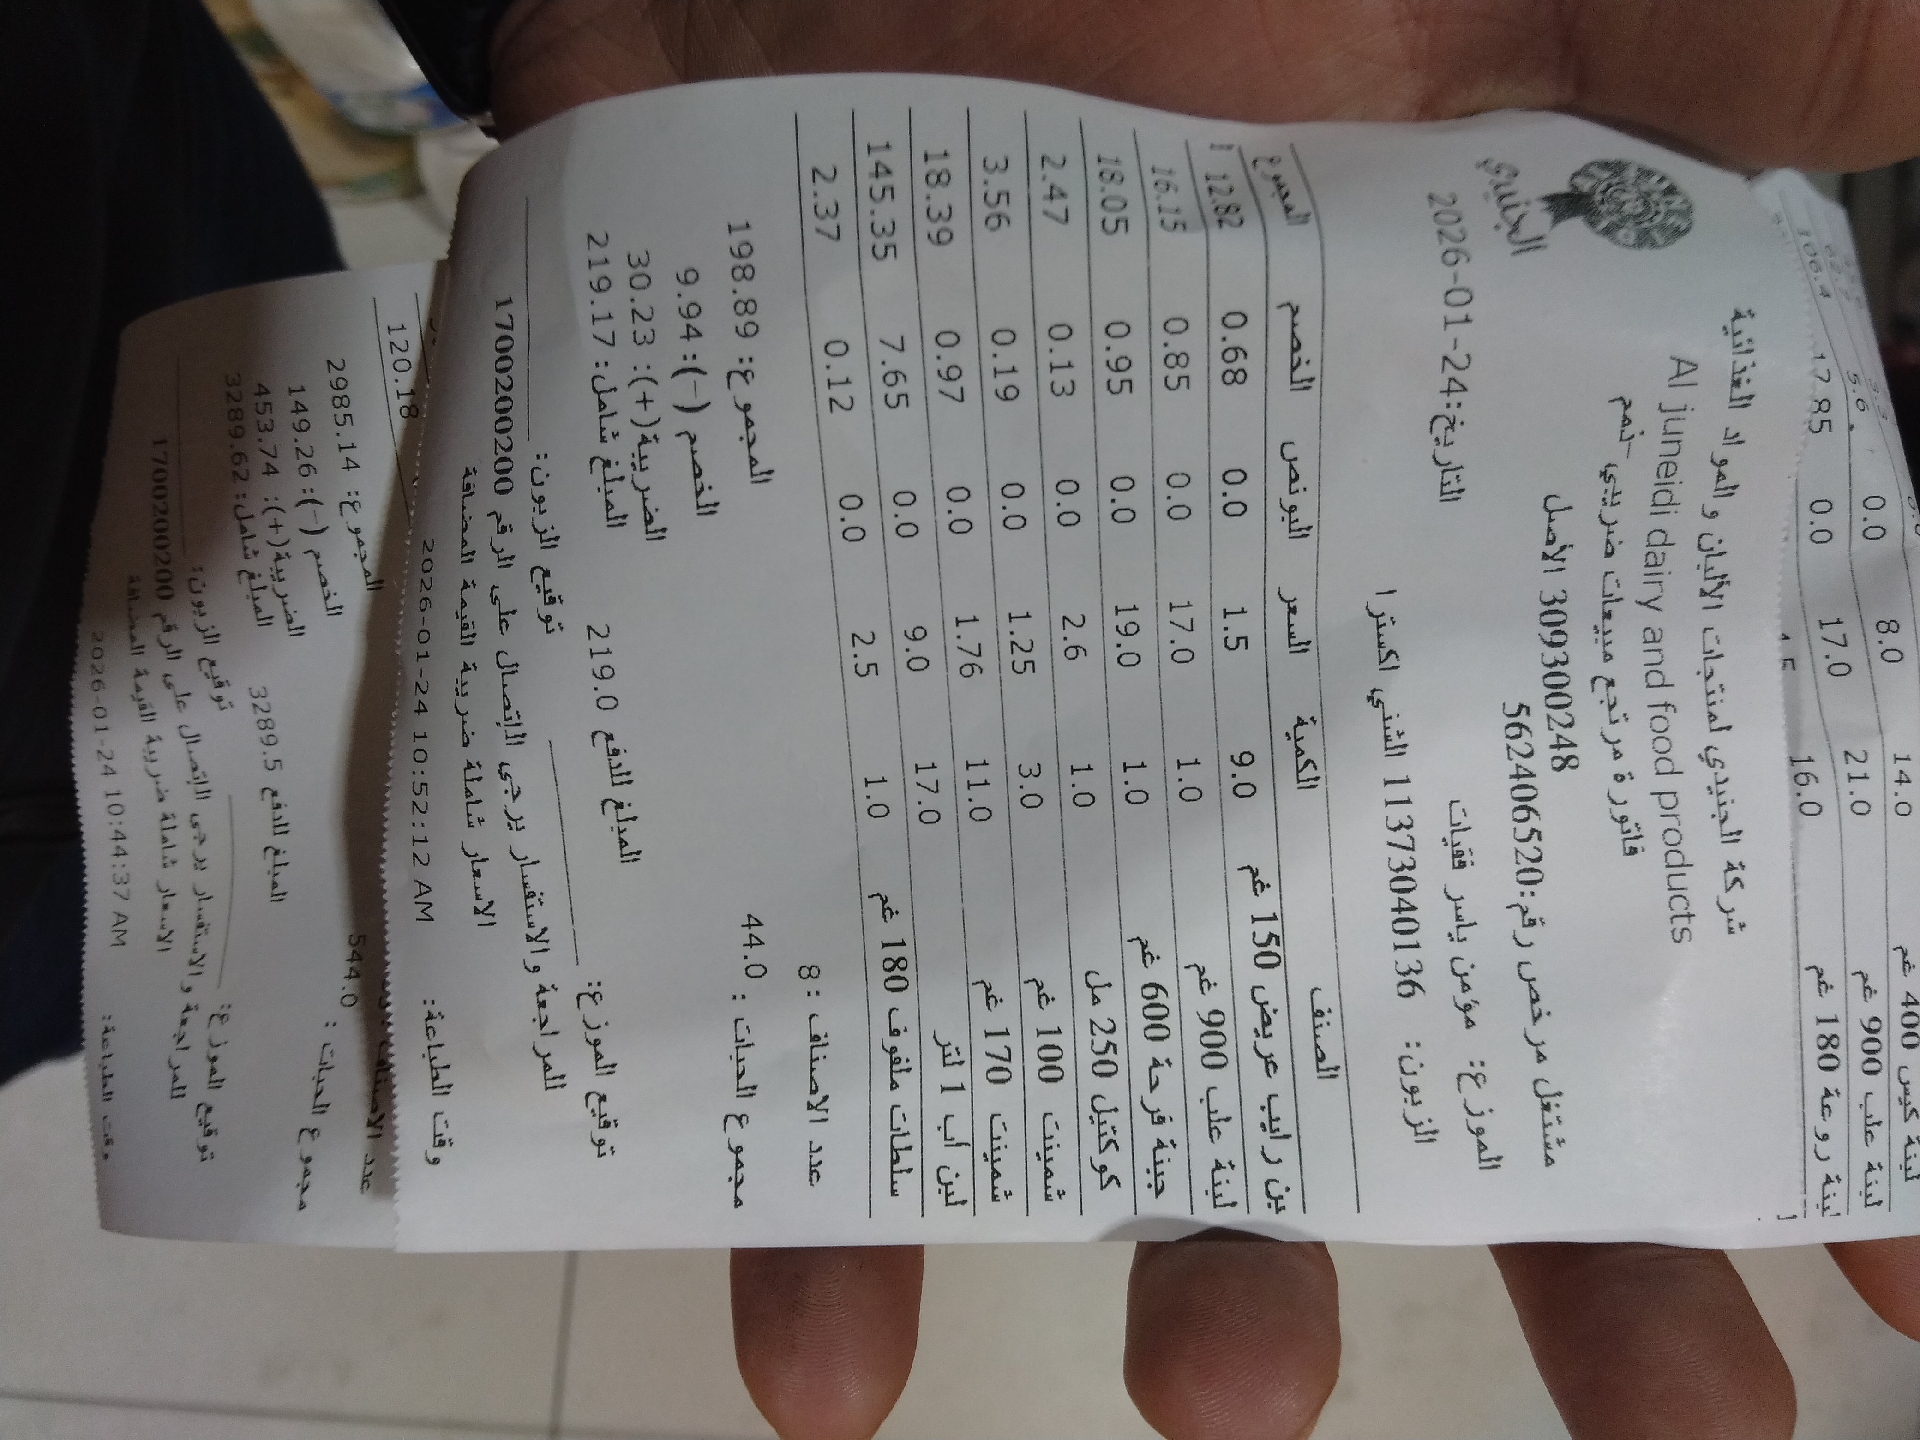 14.0 8.0 0.0
لبنة كيس 400 غم
لبنة علب 900 غم 21.0 17.0 0.0 17.85
لبنة روعة 180 غم 16.0
الجنيدي
شركة الجنيدي لمنتجات الألبان و المواد الغذائية
Al juneidi dairy and food products
فاتورة مرتجع مبيعات ضريبي
309300248 الأصل
مشتغل مرخص رقم:562406520
الموزع: مؤمن ياسر فقيات التاريخ:24-01-2026
الزبون: 11373040136 الشني اكسترا
الصنف الكمية السعر البونص الخصم المجموع
رايب عريض 150 غم 9.0 1.5 0.0 0.68 12.82
لبنة علب 900 غم 1.0 17.0 0.0 0.85 16.15
جبنة فرحة 600 غم 1.0 19.0 0.0 0.95 18.05
كوكتيل 250 مل 1.0 2.6 0.0 0.13 2.47
شمينت 100 غم 3.0 1.25 0.0 0.19 3.56
شمينت 170 غم 11.0 1.76 0.0 0.97 18.39
لبن اب 1 لتر 17.0 9.0 0.0 7.65 145.35
سلطات ملفوف 180 غم 1.0 2.5 0.0 0.12 2.37
عدد الاصناف : 8
مجموع الحبات : 44.0 المجموع: 198.89
الخصم (-): 9.94
الضريبة(+): 30.23
المبلغ للدفع 219.0 المبلغ شامل: 219.17
توقيع الموزع: توقيع الزبون:
للمراجعة و الاستفسار يرجى الاتصال على الرقم 1700200200
الاسعار شاملة ضريبة القيمة المضافة
وقت الطباعة: 2026-01-24 10:52:12 AM
120.18
عدد الاصناف
مجموع الحبات : 544.0 المجموع: 2985.14
الخصم (-): 149.26
الضريبة(+): 453.74
المبلغ للدفع 3289.5 المبلغ شامل: 3289.62
توقيع الموزع: توقيع الزبون:
للمراجعة و الاستفسار يرجى الاتصال على الرقم 1700200200
الاسعار شاملة ضريبة القيمة المضافة
وقت الطباعة: 2026-01-24 10:44:37 AM